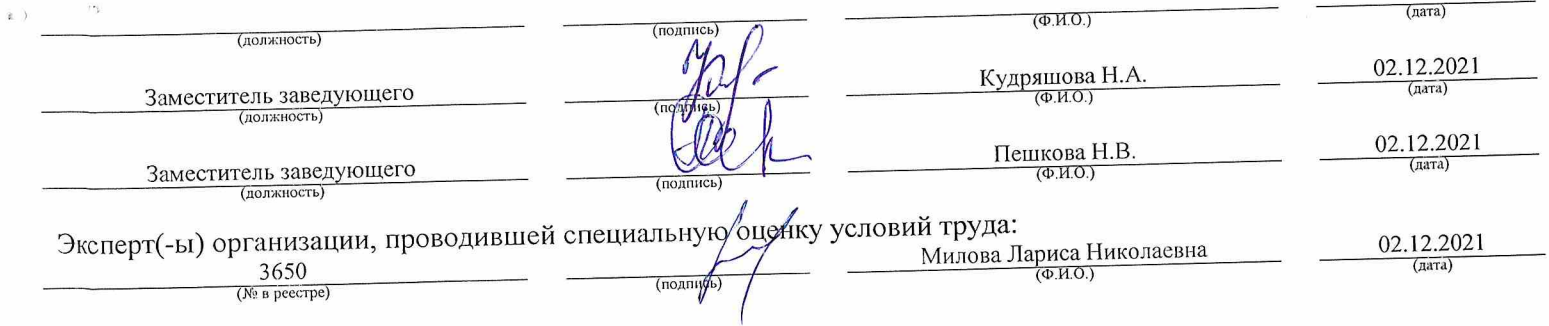 (должность) (подпись) (Ф.И.О.) (дата)
Заместитель заведующего Кудряшова Н.А. 02.12.2021
(должность) (подпись) (Ф.И.О.) (дата)
Заместитель заведующего Пешкова Н.В. 02.12.2021
(должность) (подпись) (Ф.И.О.) (дата)
Эксперт(-ы) организации, проводившей специальную оценку условий труда:
3650 Милова Лариса Николаевна 02.12.2021
(№ в реестре) (подпись) (Ф.И.О.) (дата)